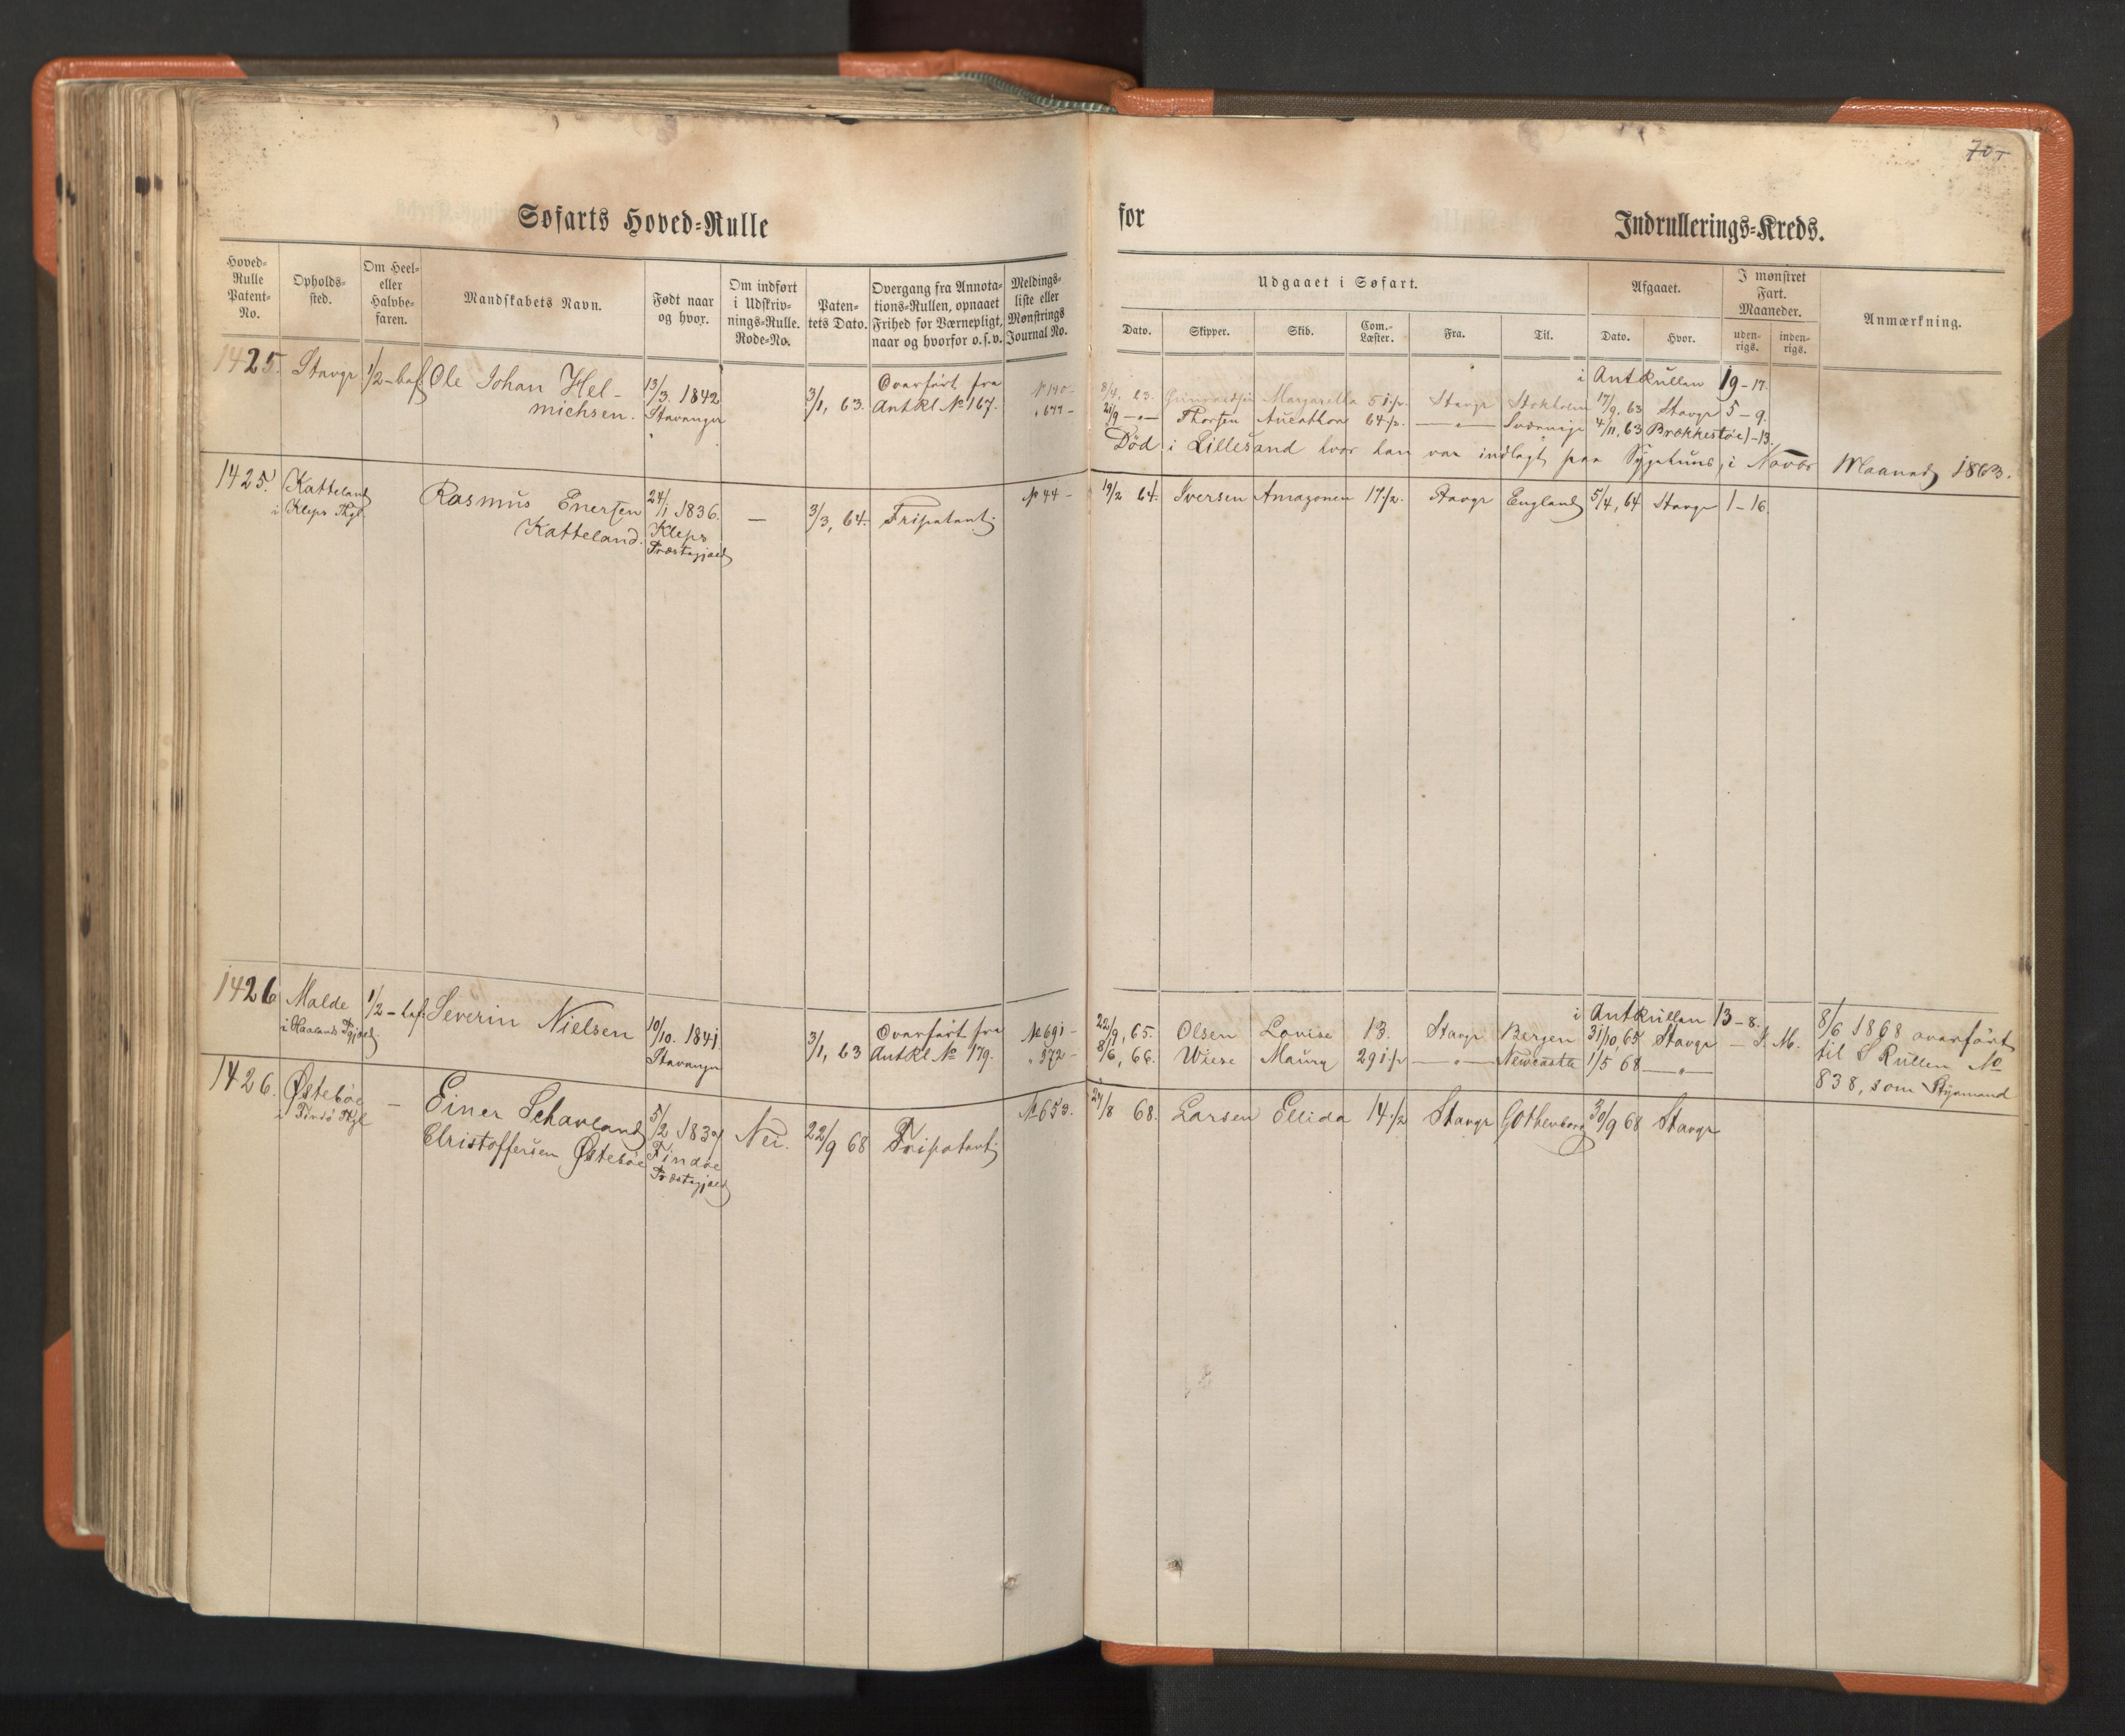 70
Søfarts Hoved=Rulle
for
Indrullerings=Kreds.
Hoved=
Rulle
Patent=
No.
Opholds=
sted.
Om Heel=
eller
Halvbe=
faren.
Mandskabets Navn.
Født naar
og hvor.
Om indført
i Udskriv=
nings=Rulle.
Rode=No.
Paten=
tets Dato.
Overgang fra Annota=
tions=Rullen, opnaaet
Frihed for Værnepligt,
naar og hvorfor o.s.v.
Meldings=
liste eller
Mønstrings
Journal No.
Udgaaet i Søfart.
Dato.
Skipper.
Skib.
Com.=
Læster.
Fra.
Til.
Afgaaet.
Dato.
Hvor.
I mønstret
Fart.
Maaneder.
uden=
rigs.
inden=
rigs.
Anmærkning.
1425. Stavgr 1/2-bef. Ole Johan Hel-
michsen.
13/3. 1842
Stavanger
3/1, 63.
Overført fra
Antkl No 167.
i Antkullen 19-17.
8/4. 63. Margaretha 51 1/2. Stavgr Stokholm 17/9, 63 Stavgr 5-9.
21/9 -"- Thorsen 64 1/2. -"- 4/11, 63 -13.
Død i Lillesand hvor han var indlagt paa Sygehuus, i Novbr Maaned 1863.
1425. Katteland
i Kleps Pgl.
Rasmus Enersen
Katteland.
24/1 1836.
Kleps
Præstegjæld
—
3/3, 64.
Fripatent
No 44 -
19/2 64. Iversen Amazonen 17 1/2. Stavgr England 5/4, 64 Stavgr 1-16.
1426 Malde
i Haalands Pgjæld
1/2-bef. Severin Nielsen
10/10. 1841.
Stavanger
3/1, 63
Overført fra
AntKl No 179.
No 691 -
" 372 -
i Antkullen 13-8.
22/9, 65. Olsen Lovise 13. Stavgr Bergen 31/10, 65 Stavgr
8/6, 66. Wiese Maury 29 1/2 -"- Newcastle 1/5 68 -"-
8/6 1868 overført
til S Rullen No
838, som Styrmand
1426. Østebøe
i Findø Pgl
—
Einer Schavland
Christoffersen Østebøe
5/2 1839
Findøe
Præstegjæld
Nei.
22/9 68
Fripatent
No 653.
24/8 68. Larsen Ellida 14 1/2 Stavgr Gothenborg 30/9 68 Stavgr